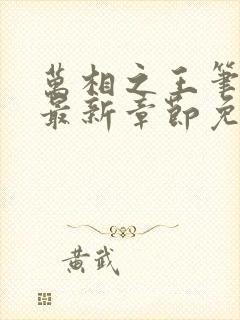 萬相之王筆
最新章節免
黃武